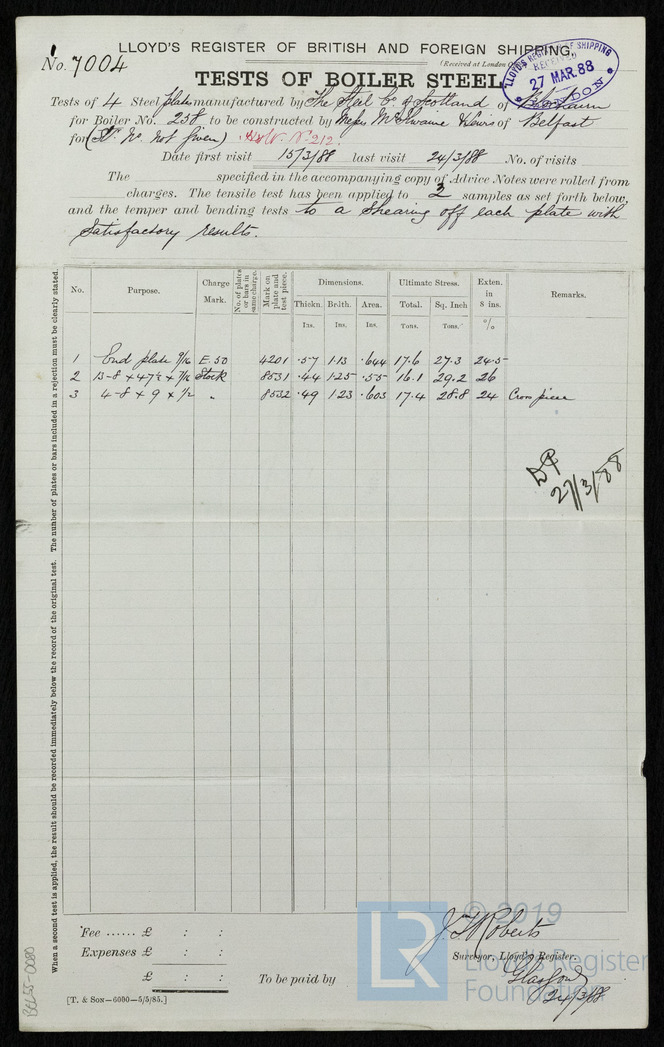 LLOYD'S REGISTER OF BRITISH AND FOREIGN SHIPPING,
No. 7004
(Received at London
LLOYD'S REGISTER OF SHIPPING
RECEIVED
27 MAR. 88
LONDON
TESTS OF BOILER STEEL
Tests of 4 Steel plates manufactured by The Steel Co. of Scotland of
for Boiler No. 258 to be constructed by Messrs McIlwaine & Lewis of Belfast
for (St. No. not given) H & W No 212.
Date first visit 15/3/88 last visit 24/3/88 No. of visits
The specified in the accompanying copy of Advice Notes were rolled from
charges. The tensile test has been applied to 3 samples as set forth below,
and the temper and bending tests to a shearing off each plate with
satisfactory results.
When a second test is applied, the result should be recorded immediately below the record of the original test. The number of plates or bars included in a rejection must be clearly stated.
No. Purpose. Charge Mark. No. of plates or bars in same charge. Mark on plate and test piece. Dimensions. Ultimate Stress. Exten. in 8 ins. Remarks.
Thickn. Br'dth. Area. Total. Sq. Inch
Ins. Ins. Ins. Tons. Tons. %
1 End plate 9/16 E.50 4201 .57 1.13 .644 17.6 27.3 24.5
2 13-8 x 47½ x 7/16 Stock 8531 .44 1.25 .55 16.1 29.2 26
3 4-8 x 9 x ½ " 8532 .49 1.23 .603 17.4 28.8 24 Cross piece
27/3/88
Fee ...... £ : :
Expenses £ : :
£ : :
To be paid by
J. Roberts
Surveyor, Lloyd's Register.
Glasgow
24/3/88
[T. & Son—6000—5/5/85.]
LR © 2019
Lloyd's Register
Foundation